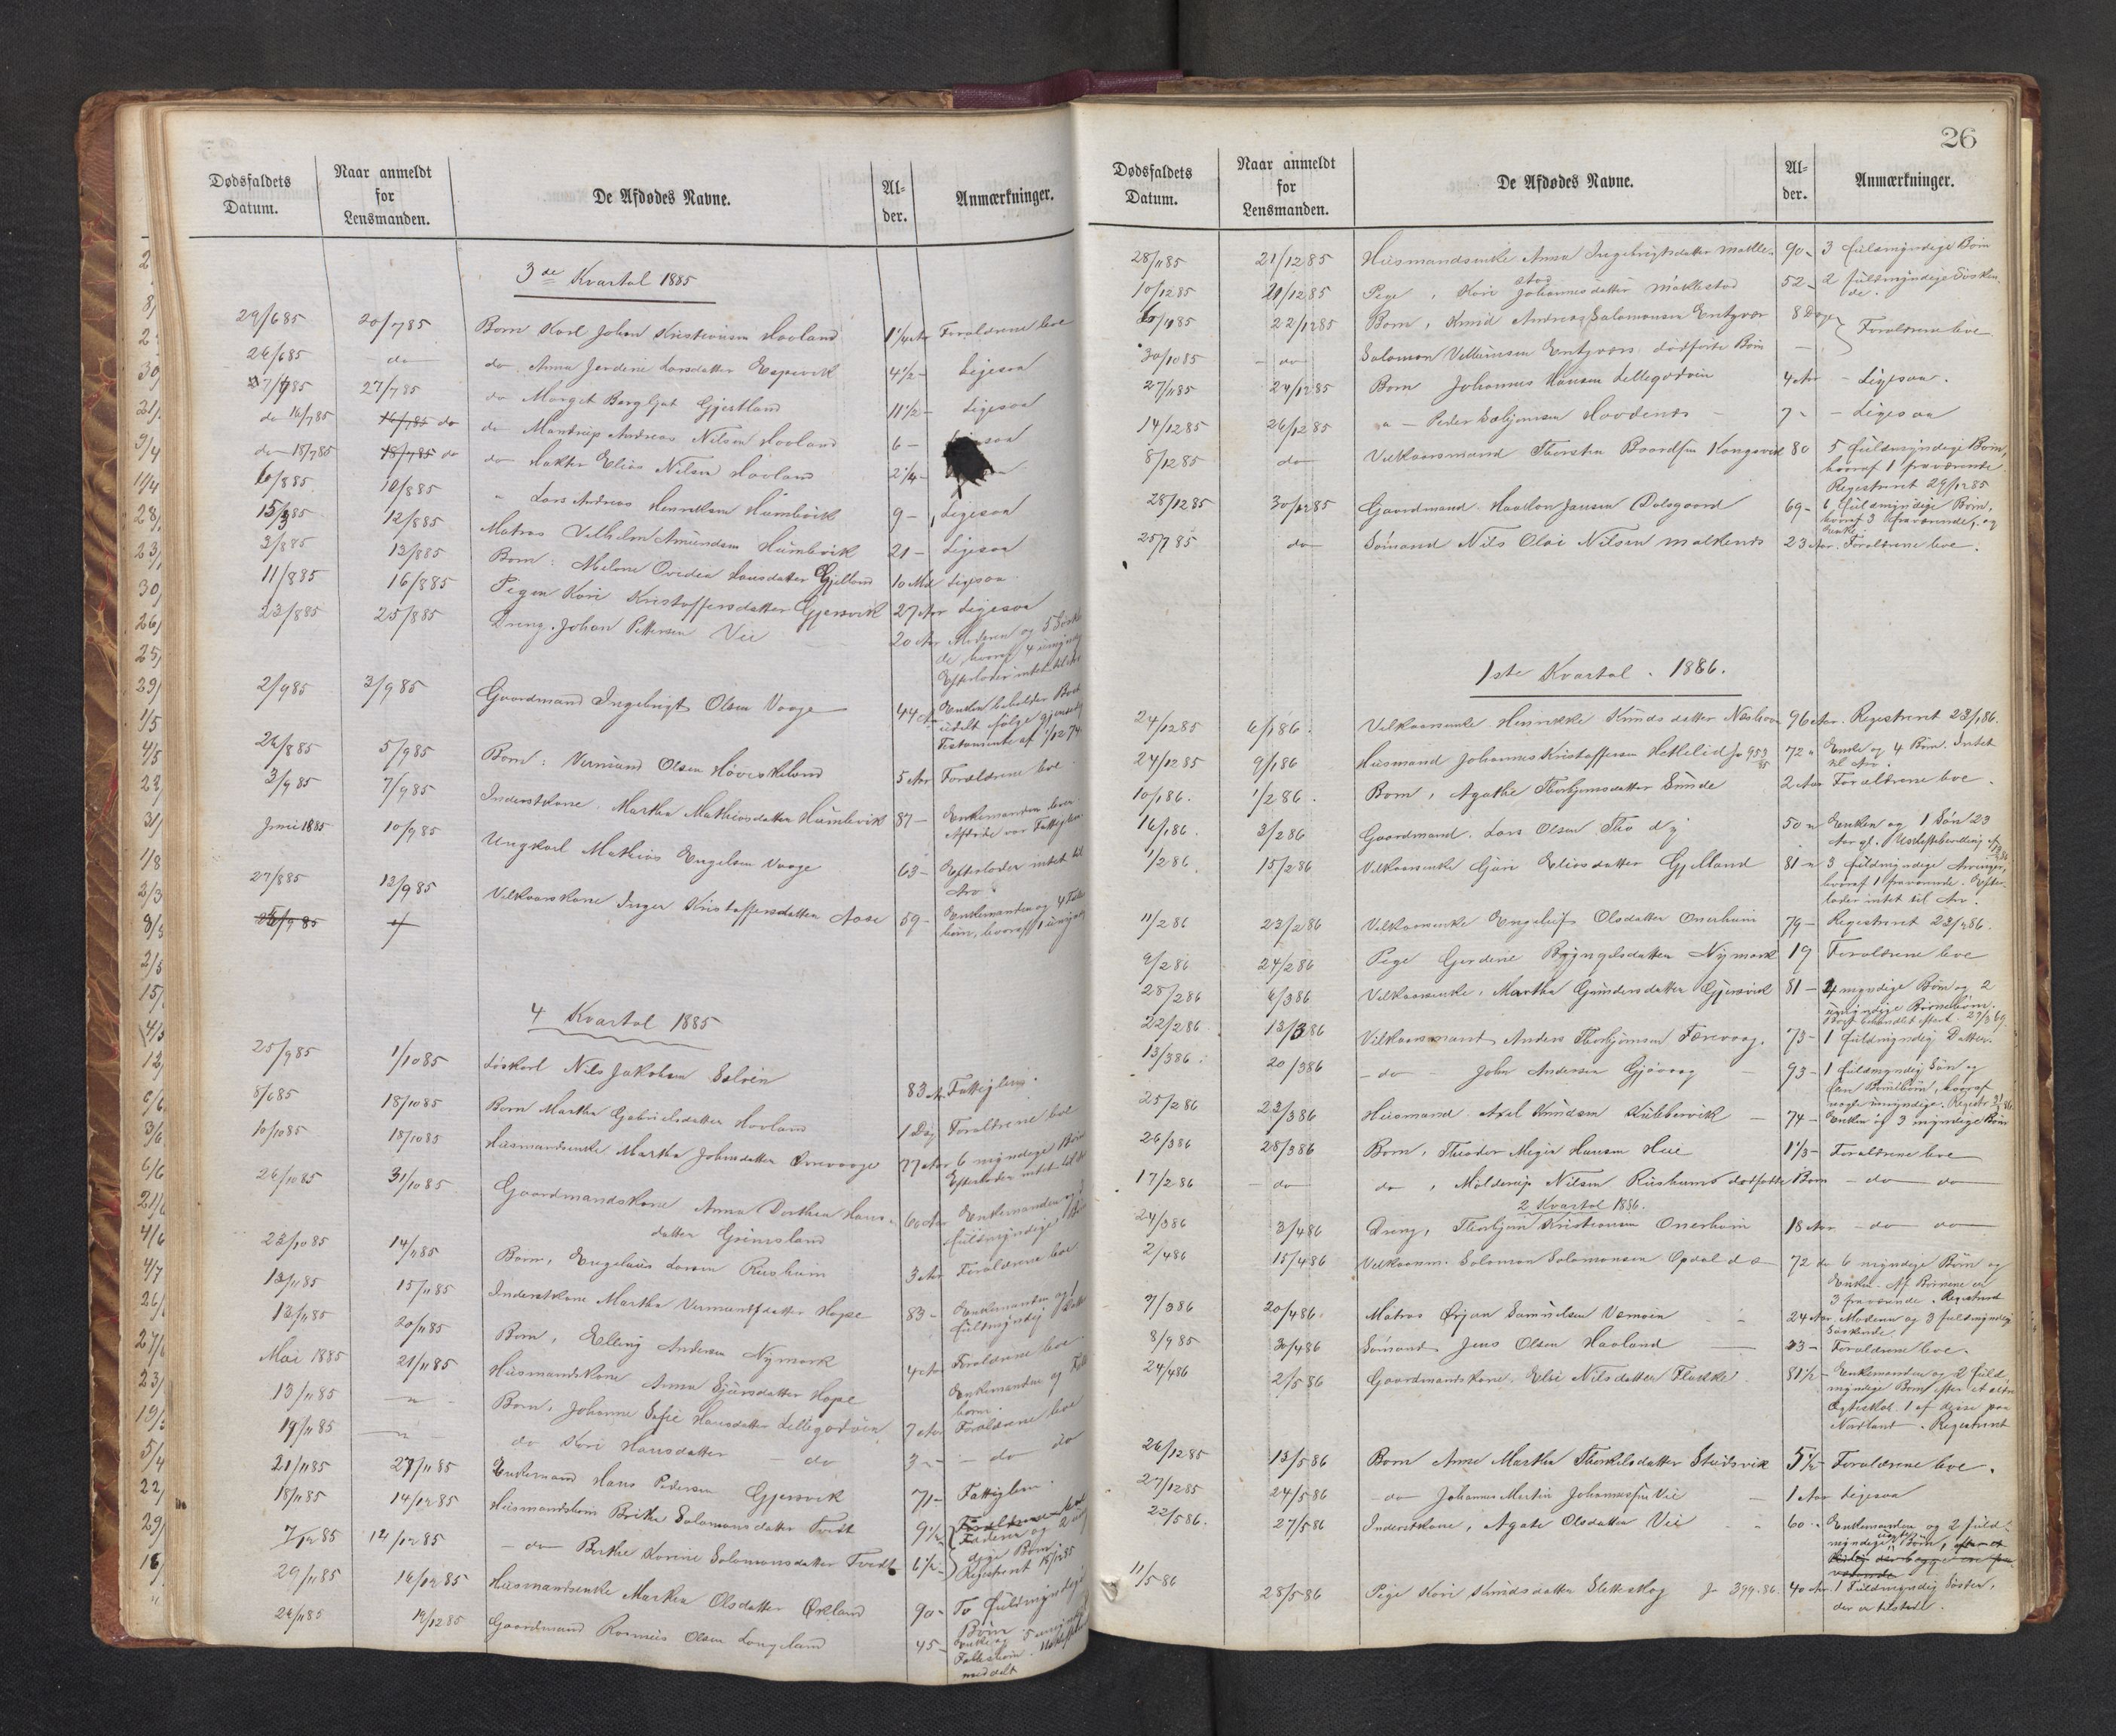 Dødsfaldets Datum.
Naar anmeldt for Lensmanden.
De Afdødes Navne.
Al-der.
Anmærkninger.
3de Kvartal 1885
29/6 85 20/7 85 Barn Karl Johan Kristiansen Haaland 1 1/4 Aar Forældrene leve
26/6 85 do do Anna Jerdine Larsdatter Espevik 4 1/2 - Ligesaa
27/7 85 do Marget Bergljot Gjertland 11 1/2 - Ligesaa
do 16/7 85 16/7 85 do do Mandrup Andreas Nilsen Haaland 6 -
do 18/7 85 18/7 85 do do Hakter Elias Nilsen Haaland 2 1/4 -
6/8 85 10/8 85 " Lars Andreas Henriksen Humlevik 9 - Ligesaa
12/8 85 Matros Vilhelm Amundsen Humlevik 21 - Ligesaa
3/8 85 13/8 85 Barn: Abelone Ovedea Hansdatter Gjelland 10 Md Ligesaa
11/8 85 16/8 85 Pigen Kari Kristoffersdatter Gjersvik 27 Aar Ligesaa
23/8 85 25/8 85 Dreng. Johan Pettersen Vie 20 Aar Moderen og 5 Søsken
de, hvoraf 4 umyndige
Efterlader intet til Arv
2/9 85 3/9 85 Gaardmand Ingebrigt Olsen Vaage 44 Aar Enken beholder Boet
udelt følge gjensidig
Testamente af 1/12 74
26/8 85 5/9 85 Barn: Vermund Olsen Høviskeland 5 Aar Forældrene leve
3/9 85 7/9 85 Inderstkone. Martha Mathiasdatter Humlevik 87 - Enkemanden lever
Afdøde var Fattiglem
Juni 1885 10/9 85 Ungkarl Mathias Engelsen Vaage 63 - Efterlader intet til
Arv
27/8 85 13/9 85 Vilkaarskone Inger Kristoffersdatter Aase 59 - Enkemanden og 4 Fælles
børn, hvoraf 1 umyndig
4 Kvartal 1885
25/9 85 1/10 85 Løskarl Nils Jakobsen Salvein 83 A. Fattiglem.
8/6 85 18/10 85 Barn Martha Gabrielsdatter Haaland 1 Dag Forældrene leve
10/10 85 18/10 85 Husmandsenke Martha Johnsdatter 77 Aar 6 myndige Børn
Efterlader intet til Arv
26/10 85 31/10 85 Gaardmandskone Anna Dorthea Hans- 60 Aar Enkemanden og 3
datter Grimsland fuldmyndige Børn
23/10 85 14/11 85 Barn, Engelaus Larsen Rusheim 3 Aar Forældrene leve
13/11 85 15/11 85 Inderstkone Martha Vermundsdatter Hope 83 - Enkemanden og 1
fuldmyndig Datter
13/11 85 20/11 85 Barn, Elling Andersen Nymark 4 Aar Forældrene leve
Mai 1885 21/11 85 Husmandskone Anna Sjursdatter Hope Enkemanden og Fælles
børn.
13/11 85 " Barn, Johanne Sofie Hansdatter Lillegodvein 7 Aar Forældrene leve
19/11 85 " do Kari Hansdatter do 3 - do do
21/11 85 27/11 85 Enkemand Hans Pedersen Gjersvik 71 - Fattiglem.
18/11 85 14/12 85 Husmandsbarn Brithe Salomonsdatter Tvedt 9 1/2
Faderen og 2 umyn-
7/12 85 12/12 85 - do Berthe Karine Salomonsdatter Tvedt 6 1/2 - dige Børn
Registreret 18/12 85
29/11 85 16/12 85 Husmandsenke Marken Olsdatter Økland 90 - To fuldmyndige
Børn
26/11 85 19/12 85 Gaardmand Rasmus Olsen Langeland 45 - Enke og 5 umyndige
Fællesbørn. Uskiftebev.
meddelt
26
Dødsfaldets Datum.
Naar anmeldt for Lensmanden.
De Afdødes Navne.
Al-der.
Anmærkninger.
28/11 85 21/12 85 Husmandsenke Anna Ingebrigtsdatter Matle- 90 - 3 fuldmyndige Børn
stad
10/12 85 21/12 85 Pige, Kari Johannesdatter Matlestad 52 - 2 fuldmyndige Søsken-
de.
22/12 85 Barn, Knud Andreas Salomonsen Entzvær 8 Dage Forældrene leve
30/10 85 - do Salomon Villumsen Entzværs dødfødte Barn -
27/11 85 24/12 85 Barn Johannes Hansen Lillegodvein 4 Aar - Ligesaa.
14/12 85 26/12 85 " - Peder Sæbjørnsen 7 - - Ligesaa
8/12 85 do Vilkaarsmand Thorsten Baardsen Kongsvik 80 5 fuldmyndige Børn,
hvoraf 1 fraværende
Registreret 29/12 85
28/12 85 30/12 85 Gaardmand Haakon Jansen Dalsgaard 69 - 6 fuldmyndige Børn,
hvoraf 3 fraværende, og
Enke
25/7 85 do Sømand Nils Olai Nilsen 23 Aar. Forældrene leve.
1ste Kvartal. 1886.
24/12 85 6/1 86. Vilkaarsenke Henrikke Knudsdatter 96 Aar. Registreret 23/1 86.
24/12 85 9/1 86 Husmand Johannes Kristoffersen Hetleli Jr 953/85 72 " Enke og 4 Børn. Intet
til Arv.
10/1 86. 1/2 86. Barn, Agathe Thorbjørnsdatter Sunde 2 Aar Forældrene leve.
16/1 86. 3/2 86 Gaardmand. Lars Olsen Tho d y 50 " Enken og 1 Søn 23
Aar gl.
1/2 86. 15/2 86 Vilkaarsenke Guri Eliasdatter Gjelland 81 " 3 fuldmyndige Arvinger,
hvoraf 1 fraværende. Efter-
lader intet til Arv.
11/2 86 23/2 86 Vilkaarsenke Engeleif Olsdatter Onerheim 79 - Registreret 23/2 86.
9/2 86 24/2 86 Pige Gerdine Bryngelsdatter Nymark 19 Forældrene leve
28/2 86 6/3 86 Vilkaarsenke, Martha Gundersdatter Gjersvik 81 - 4 myndige Børn og 2
umyndige Børnebørn.
22/2 86. 13/3 86 Vilkaarsmand Anders Thorbjørnsen Færevaag. 73 - 1 fuldmyndig Datter.
13/3 86. 20/3 86 - do - John Andersen Gjøvaag 93 - 1 fuldmyndig Søn og
flere Børnebørn, hvoraf
nogle umyndige.
25/2 86 23/3 86 Husmand Axel Knudsen Kubbervik 74 - Enken og 3 myndige Børn
26/3 86 28/3 86 Barn, Theodor Meyer Hansen Hille 1 1/3 - Forældrene leve
17/2 86 - do do, Mandrup Nilsen Rusheims dødfødte Barn - do do
2 Kvartal 1886.
24/3 86 3/4 86 Dreng, Thorbjørn Kristiansen Onerheim 18 Aar - do do
2/4 86 15/4 86 Vilkaarsm. Salomon Salomonsen Opdal d æ 72 do 6 myndige Børn og
Enke. Af Børnene er
3 fraværende. Registreret
7/3 86 20/4 86. Matros Ørjan Samuelsen Vernøen 24 Aar. Moderen og 3 fuldmyndige
Søskende.
8/9 85 30/4 86 Sømand Jens Olsen Haaland 33 - Forældrene leve.
24/4 86 2/5 86 Gaardmandskone. Elsi Nilsdatter Flukke 81 1/2 - Enkemanden og 2 fuld-
myndige Børn efter et ældre
Ægteskab. 1 af disse paa
Nordland. Registreret
26/12 85 13/5 86 Barn Anne Martha Thorkildsdatter Skudsvik 5 1/2 - Forældrene leve.
27/12 85 24/5 86 - do Johannes Martin Johannessen Vie 1 Aar Ligesaa
22/5 86. 27/5 86 Inderstkone, Agate Olsdatter Vie 60 - Enkemanden og 2 fuld-
myndige Børn,
11/5 86 28/5 86 Pige Kari Knudsdatter Sletteskog Jr 399.86. 40 Aar. 1 Fuldmyndig Søster,
der er tilstede.